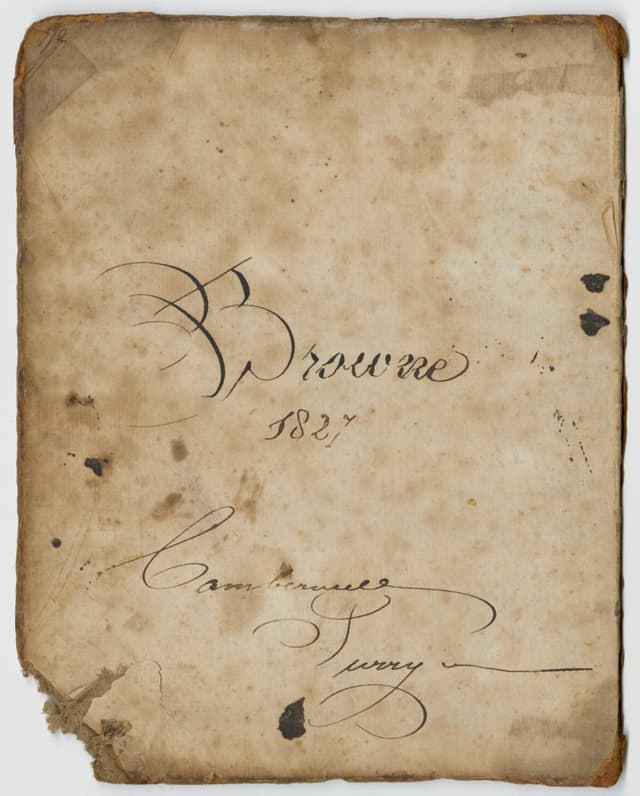 Browne
1827
Camberwell
Surry